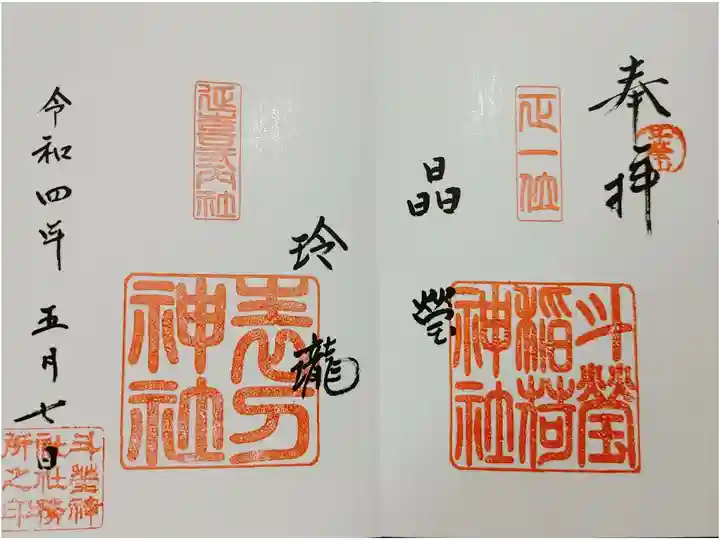 奉拝
正一位
斗瑩
稲荷
神社
晶瑩
玲瓏
延喜式社
表刀
神社
令和四年五月七日
斗瑩神
社社務
所之印